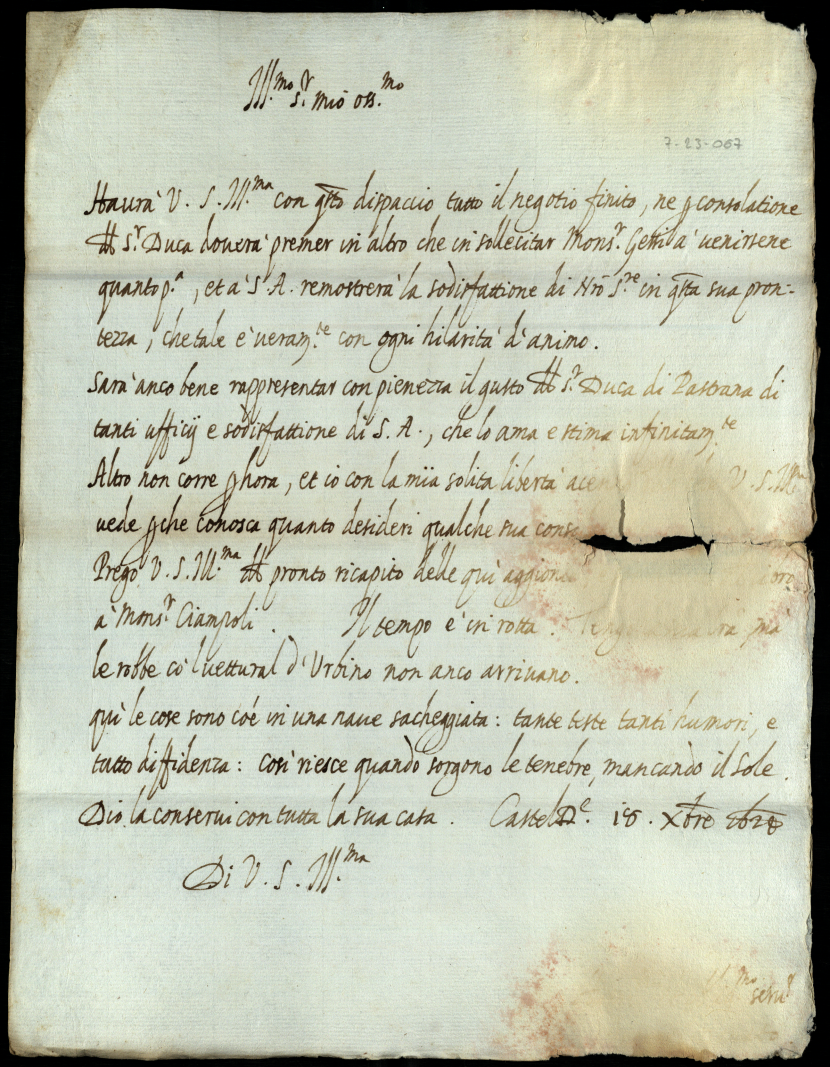 Ill.mo S.r mio oss.mo
7-23-067
Havrà V. S. Ill.ma con q̃sto dispaccio tutto il negotio finito, ne p consolatione
del S.r Duca doverà premer in altro che in sollecitar Mons.r Gessi à venirsene
quanto p.a, et à S. A. remostrerà la sodisfattione di Nr̃o S.re in q̃sta sua pron-
tezza, che tale è veram.te con ogni hilarità d'animo.
Sarà anco bene rappresentar con pienezza il gusto del S.r Duca di Pastrana di
tanti ufficij e sodisfattione di S. A., che lo ama e stima infinitam.te
Altro non corre p hora, et io con la mia solita libertà V. S. Ill.ma
vede p che conosca quanto desideri qualche sua
Prego V. S. Ill.ma del pronto ricapito delle quì
à Mons.r Ciampoli. Il tempo è in rotta. ma
le robbe co 'l vettural d'Urbino non anco arrivano.
quì le cose sono coẽ in una nave sacheggiata: tante teste tanti humori, e
tutto diffidenza: così riesce quando sorgono le tenebre, mancando il Sole.
Dio la conservi con tutta la sua casa. Castel D.e 18. Xbre 1628
Di V. S. Ill.ma